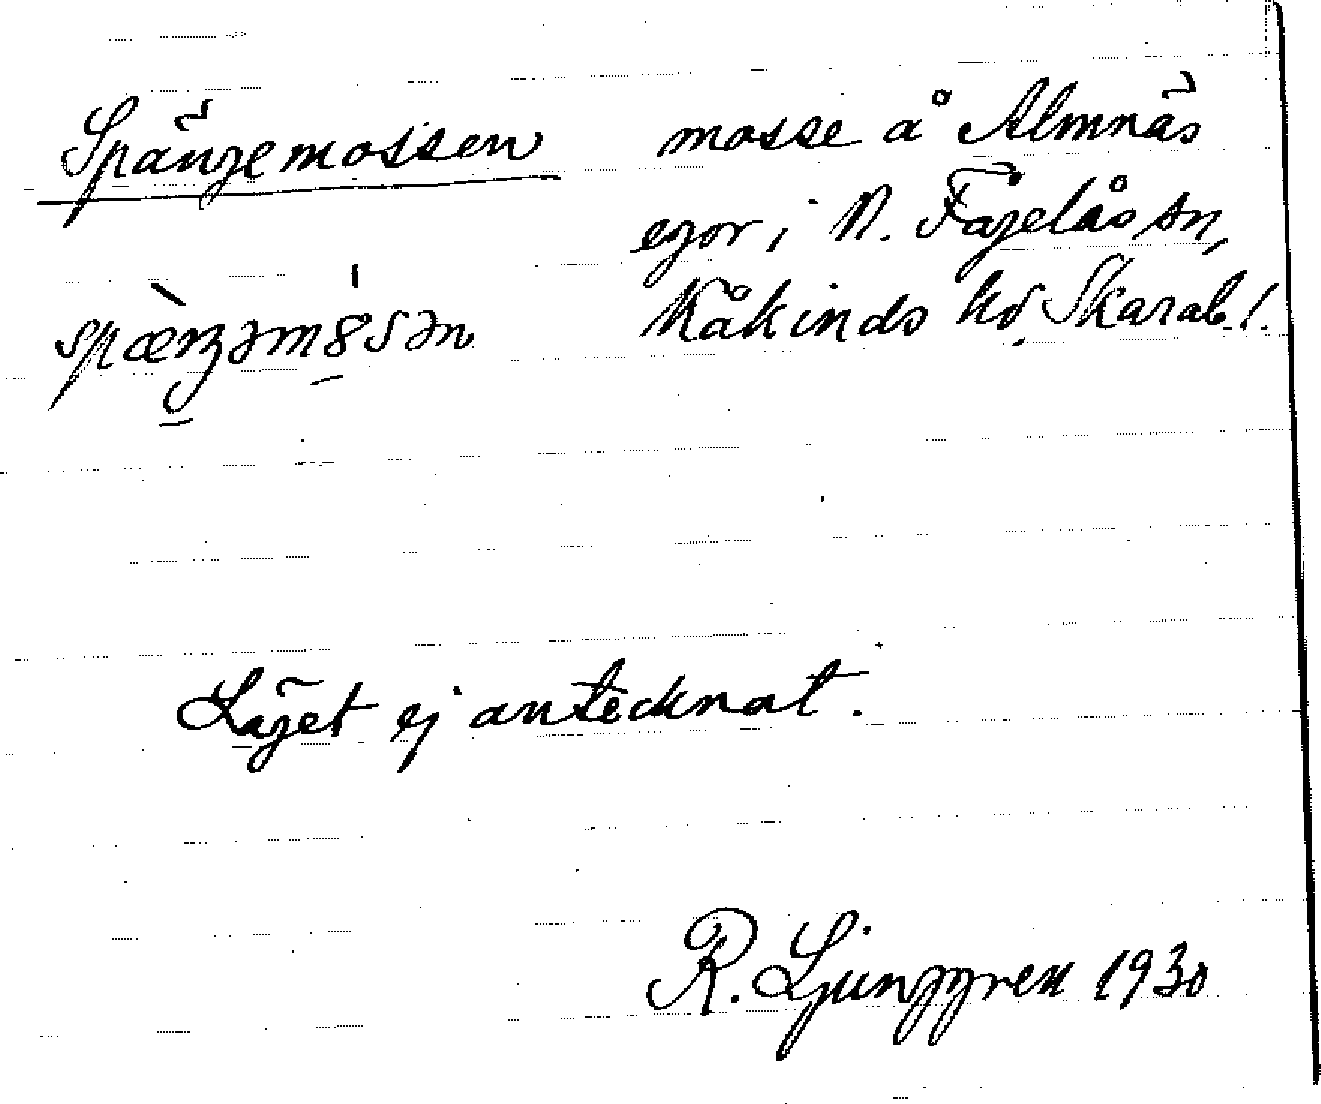 Spängemossen mosse å Almnäs
egor i N. Fågelås sn,
Kåkinds hd, Skarab. l.
Läget ej antecknat.
R. Ljunggren 1930